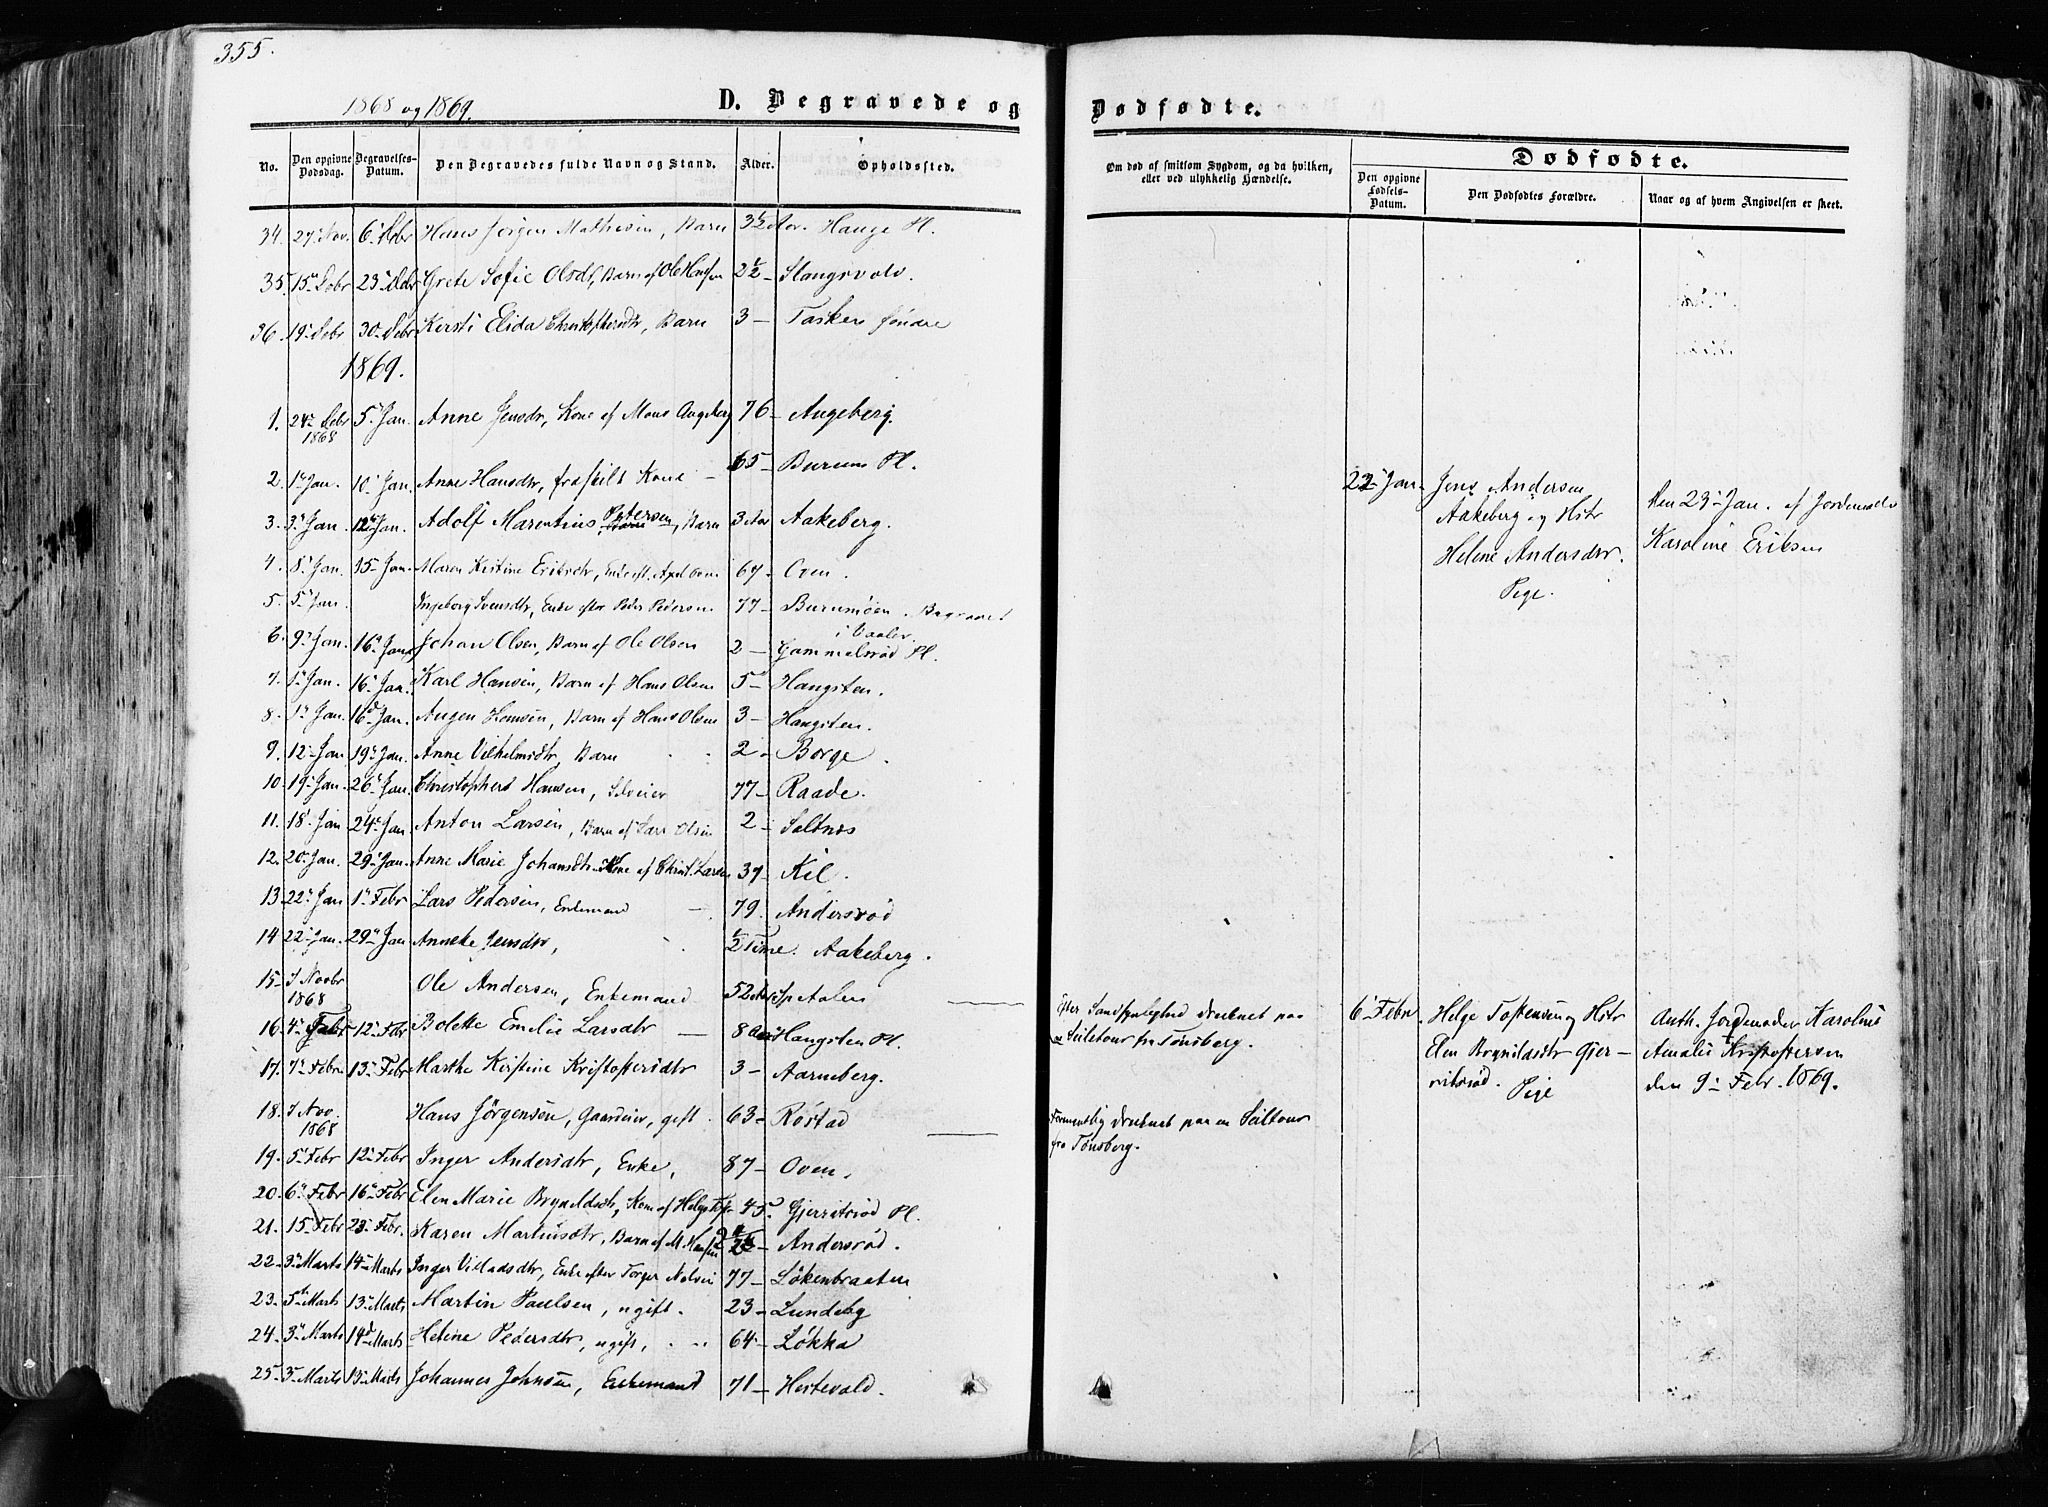 355.
1868 og 1869.
D. Begravede og
No. Den opgivne Dødsdag. Begravelses-Datum. Den Begravedes fulde Navn og Stand. Alder. Opholdssted.
34. 27 Nov. 6 Debr Hans Jørgen Mathisen, Barn 3½ Aar. Hauge Pl.
35. 15 Debr 23 Debr Grete Sofie Olsdr, Barn af Ole 2½ - Slangsvolv.
36. 19 Debr 30 Debr Kersti Elida Christophersdtr, Barn 3 - Tasken søndre
1869.
1. 24 Debr 1868 5 Jan. Anne Jensdr, Kone af Mons Augeberg 76 - Augeberg.
2. 1 Jan. 10 Jan. Anne Hansdtr, fraskilt Kone - 65 - Burum Pl.
3. 3 Jan 12 Jan. Adolf Marentius Petersen, Barn 3 Aar Aakeberg.
4. 8 Jan. 15 Jan. Maren Kistine Eriksdtr, Enke eft. Axel Oven 67 - Oven.
5. 5 Jan Ingeborg Svensdtr, Enke efter Peder Pedersen 77 - Burumøen. Begravet
i Vaaler.
6. 9 Jan. 16 Jan. Johan Olsen, Barn af Ole Olsen 2 - Gammelsrød Pl.
7. 1 Jan. 16 Jan. Karl Hansen, Barn af Hans Olsen 5 - Hangsten.
8. 1 Jan. 16 Jan. Augen Hansen, Barn af Hans Olsen 3 - Hangsten.
9. 12 Jan 19 Jan. Anne Vilhelmsdtr, Barn 2 - Borge.
10. 19 Jan. 26 Jan. Christophert Hansen, Selveier 77 - Raade.
11. 18 Jan 24 Jan. Anton Larsen, Barn af Lars Olsen 2 - Saltnes
12. 20 Jan. 29 Jan. Anne Marie Johansdtr Kone af Christ. Larsen 37 - Kil.
13. 22 Jan 1 Febr Lars Pedersen, Enkemand - 79. Andersrød
14 22 Jan. 29 Jan Anneke Jensdtr, ½ Time. Aakeberg.
15 - 7 Novbr 1868 Ole Andersen, Enkemand 52 Aar Spetalen
16. 4 Febr 12 Febr Bolette Emelie Larsdtr - 8 Aar Hangsten Pl.
17. 7 Febr. 13 Febr Marthe Kirstine Kristofersdtr 3 - Aarneberg.
18. 7 Nov. 1868 Hans Jørgensen, Gaardeier, gift. 63 - Røstad
19. 5 Febr 12 Febr Inger Andersdtr, Enke, 87 - Oven.
20. 6 Febr 16 Febr Elen Marie Bryneldsdtr, Kone af Helge 45. Gjervitsrød Pl.
21. 15 Febr 23 Febr. Karen Martinsdtr, Barn af M. Hansen 2½ - Andersrød.
22. 3 Marts 14 Marts Inger Villadsdtr, Enke efter Torger 77 - Løkenbraaten
23. 5 Marts 13 Marts Martin Paulsen, ugift. 23 - Lundeby
24. 3 Marts 14 Marts Helene Pedersdtr, ugift, 64 - Løkka
25 - 3 Marts 13 Marts Johannes Johnsen, Enkemand 71 - Hestevold.
Dødfødte.
Om død af smitsom Sygdom, og da hvilken, eller ved ulykkelig Hændelse.
Dødfødte.
Den opgivne Fødsels-Datum. Den Dødfødtes Forældre. Naar og af hvem Angivelsen er skeet.
22 Jan. Jens Andersen
Aakeberg og Hstr
Helene Andersdtr.
Pige.
Den 23 Jan. af Jordemoder
Karoline Eriksen
Efter Sandsynlighed druknet paa
en Seiletour fra Tønsberg.
6 Febr. Helge Tostensen og Hstr
Elen Brynildsdtr Gjer-
vitsrød. Pige
Auth. Jordemoder Karoline
Amalie Kristofersen
den 9 Febr. 1869.
Formentlig druknet paa en Seiltour
fra Tønsberg.